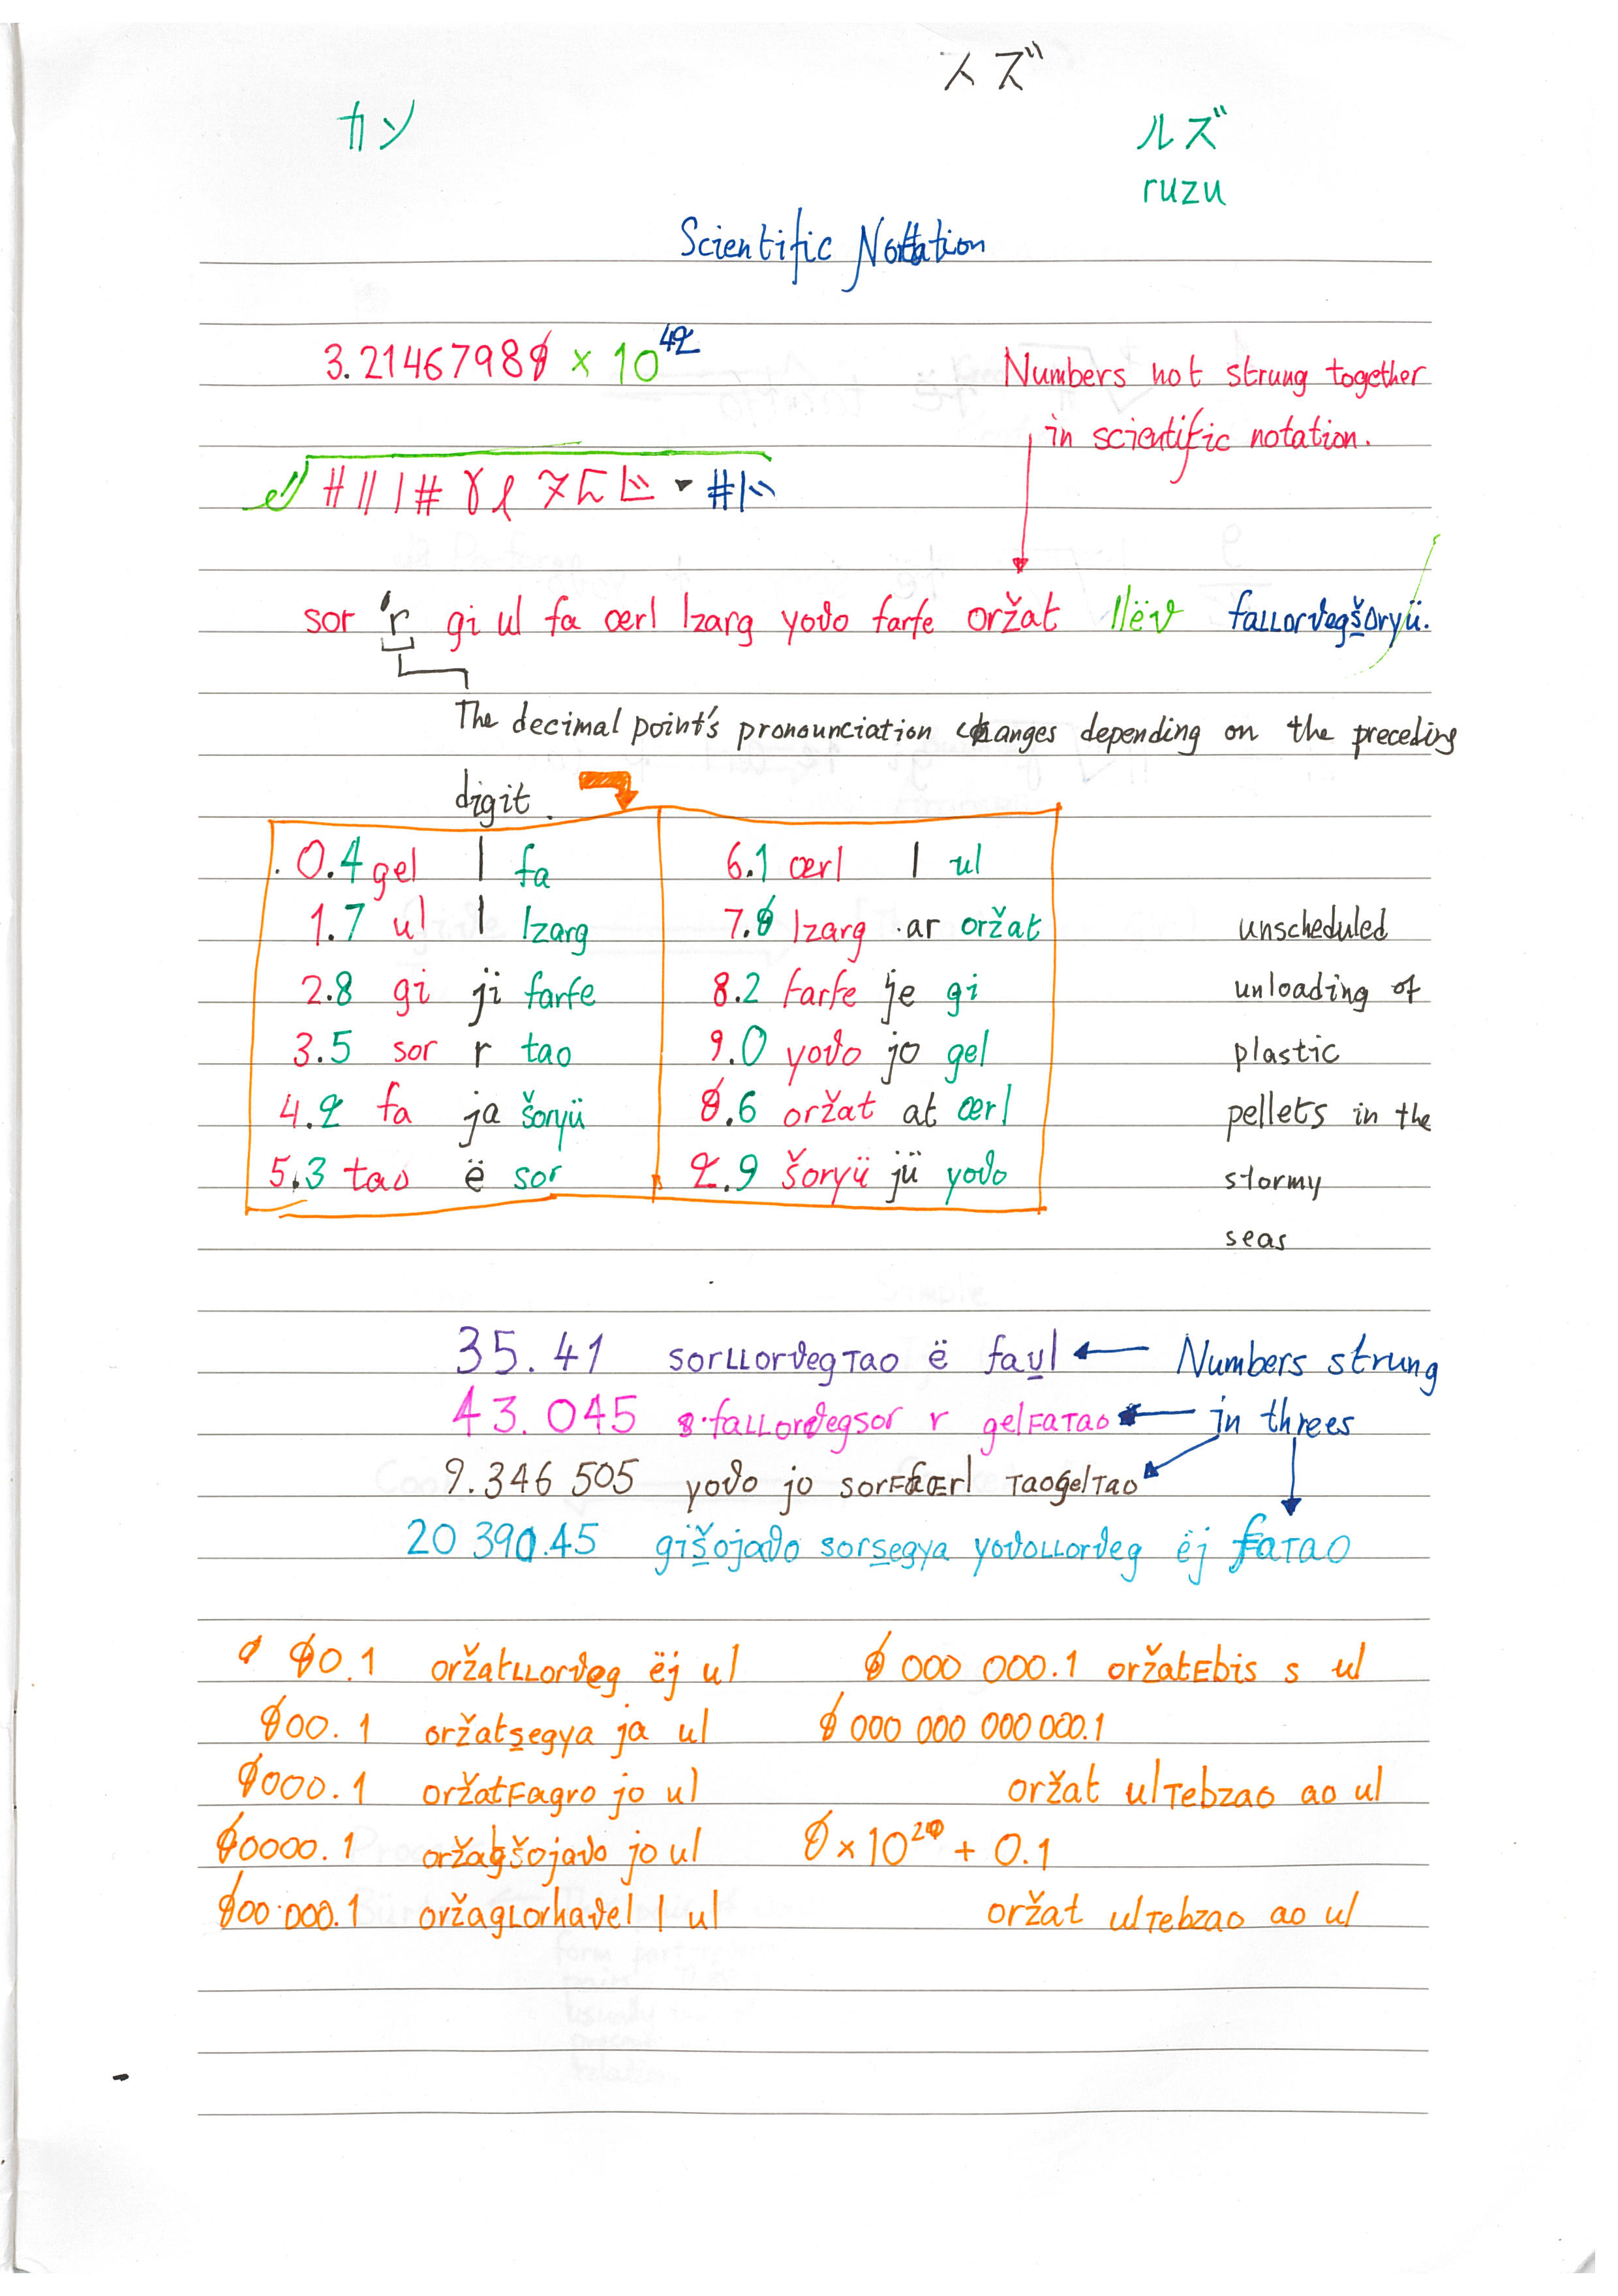 スズ
カソ
ルズ
ruzu
Scientific Notation
3.2146798 × 10
Numbers not strung together
in scientific notation.
sor 'r gi ul fa œrl lzarg yoϑo farfe oržat llëϑ faLLorϑegšoryü.
The decimal point's pronounciation changes depending on the preceding
digit.
0.4 gel l fa 6.1 œrl l ul
1.7 ul l lzarg 7. lzarg ar oržat unscheduled
2.8 gi ji farfe 8.2 farfe je gi unloading of
3.5 sor r tao 9.0 yoϑo jo gel plastic
4. fa ja šoryü .6 oržat at œrl pellets in the
5.3 tao ë sor .9 šoryü jü yoϑo stormy
seas
35.41 sorLLorϑegTAO ë faul ← Numbers strung
43.045 faLLorϑegsor r gelFATAO ← in threes
9.346 505 yoϑo jo sorFAŒrl TAOgelTAO
20 390.45 gišojaϑo sorsegya yoϑoLLorϑeg ëj FATAO
0.1 oržatLLorϑeg ëj ul 000 000.1 oržatEbis s ul
00.1 oržatsegya ja ul 000 000 000 000.1
000.1 oržatFagro jo ul oržat ulTebzao ao ul
0000.1 oržagšojaϑo jo ul × 10 + 0.1
00 000.1 oržagLorhaϑel l ul oržat ulTebzao ao ul